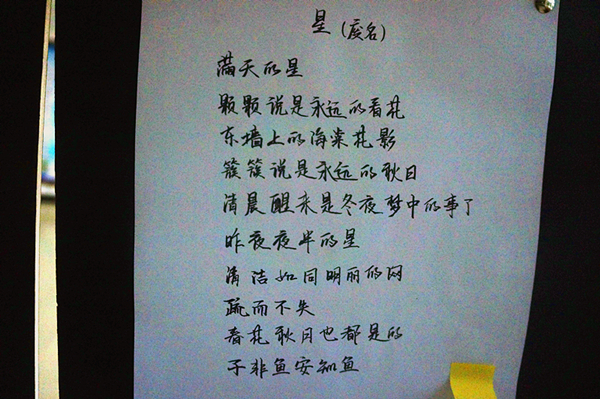 星(废名)
满天的星
颗颗说是永远的春花
东墙上的海棠花影
簇簇说是永远的秋月
清晨醒来是冬夜梦中的事了
昨夜夜半的星
清洁如同明丽的网
疏而不失
春花秋月也都是的
子非鱼安知鱼